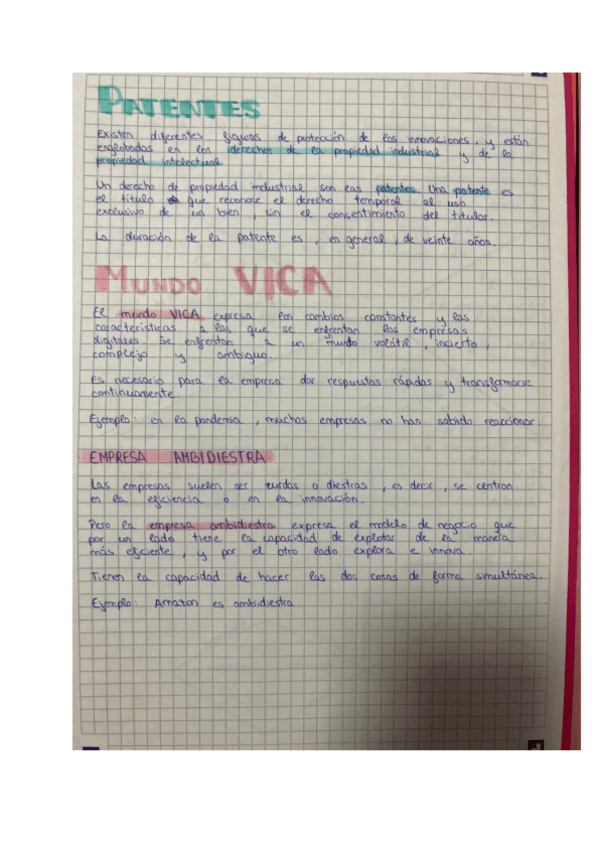 PATENTES
Existen diferentes figuras de protección de las innovaciones, y están
englobadas en los derechos de la propiedad industrial y de la
propiedad intelectual.
Un derecho de propiedad industrial son las patentes. Una patente es
el título que reconoce el derecho temporal al uso
exclusivo de un bien, sin el consentimiento del titular.
La duración de la patente es, en general, de veinte años.
MUNDO VICA
El mundo VICA expresa los cambios constantes y las
características a las que se enfrentan las empresas
digitales. Se enfrentan a un mundo volátil, incierto,
complejo y ambiguo.
Es necesario para la empresa dar respuestas rápidas y transformarse
continuamente.
Ejemplo: en la pandemia, muchas empresas no han sabido reaccionar.
EMPRESA AMBIDIESTRA
Las empresas suelen ser zurdas o diestras, es decir, se centran
en la eficiencia o en la innovación.
Pero la empresa ambidiestra expresa el modelo de negocio que
por un lado tiene la capacidad de explotar de la manera
más eficiente, y por el otro lado explora e innova.
Tienen la capacidad de hacer las dos cosas de forma simultánea.
Ejemplo: Amazon es ambidiestra.